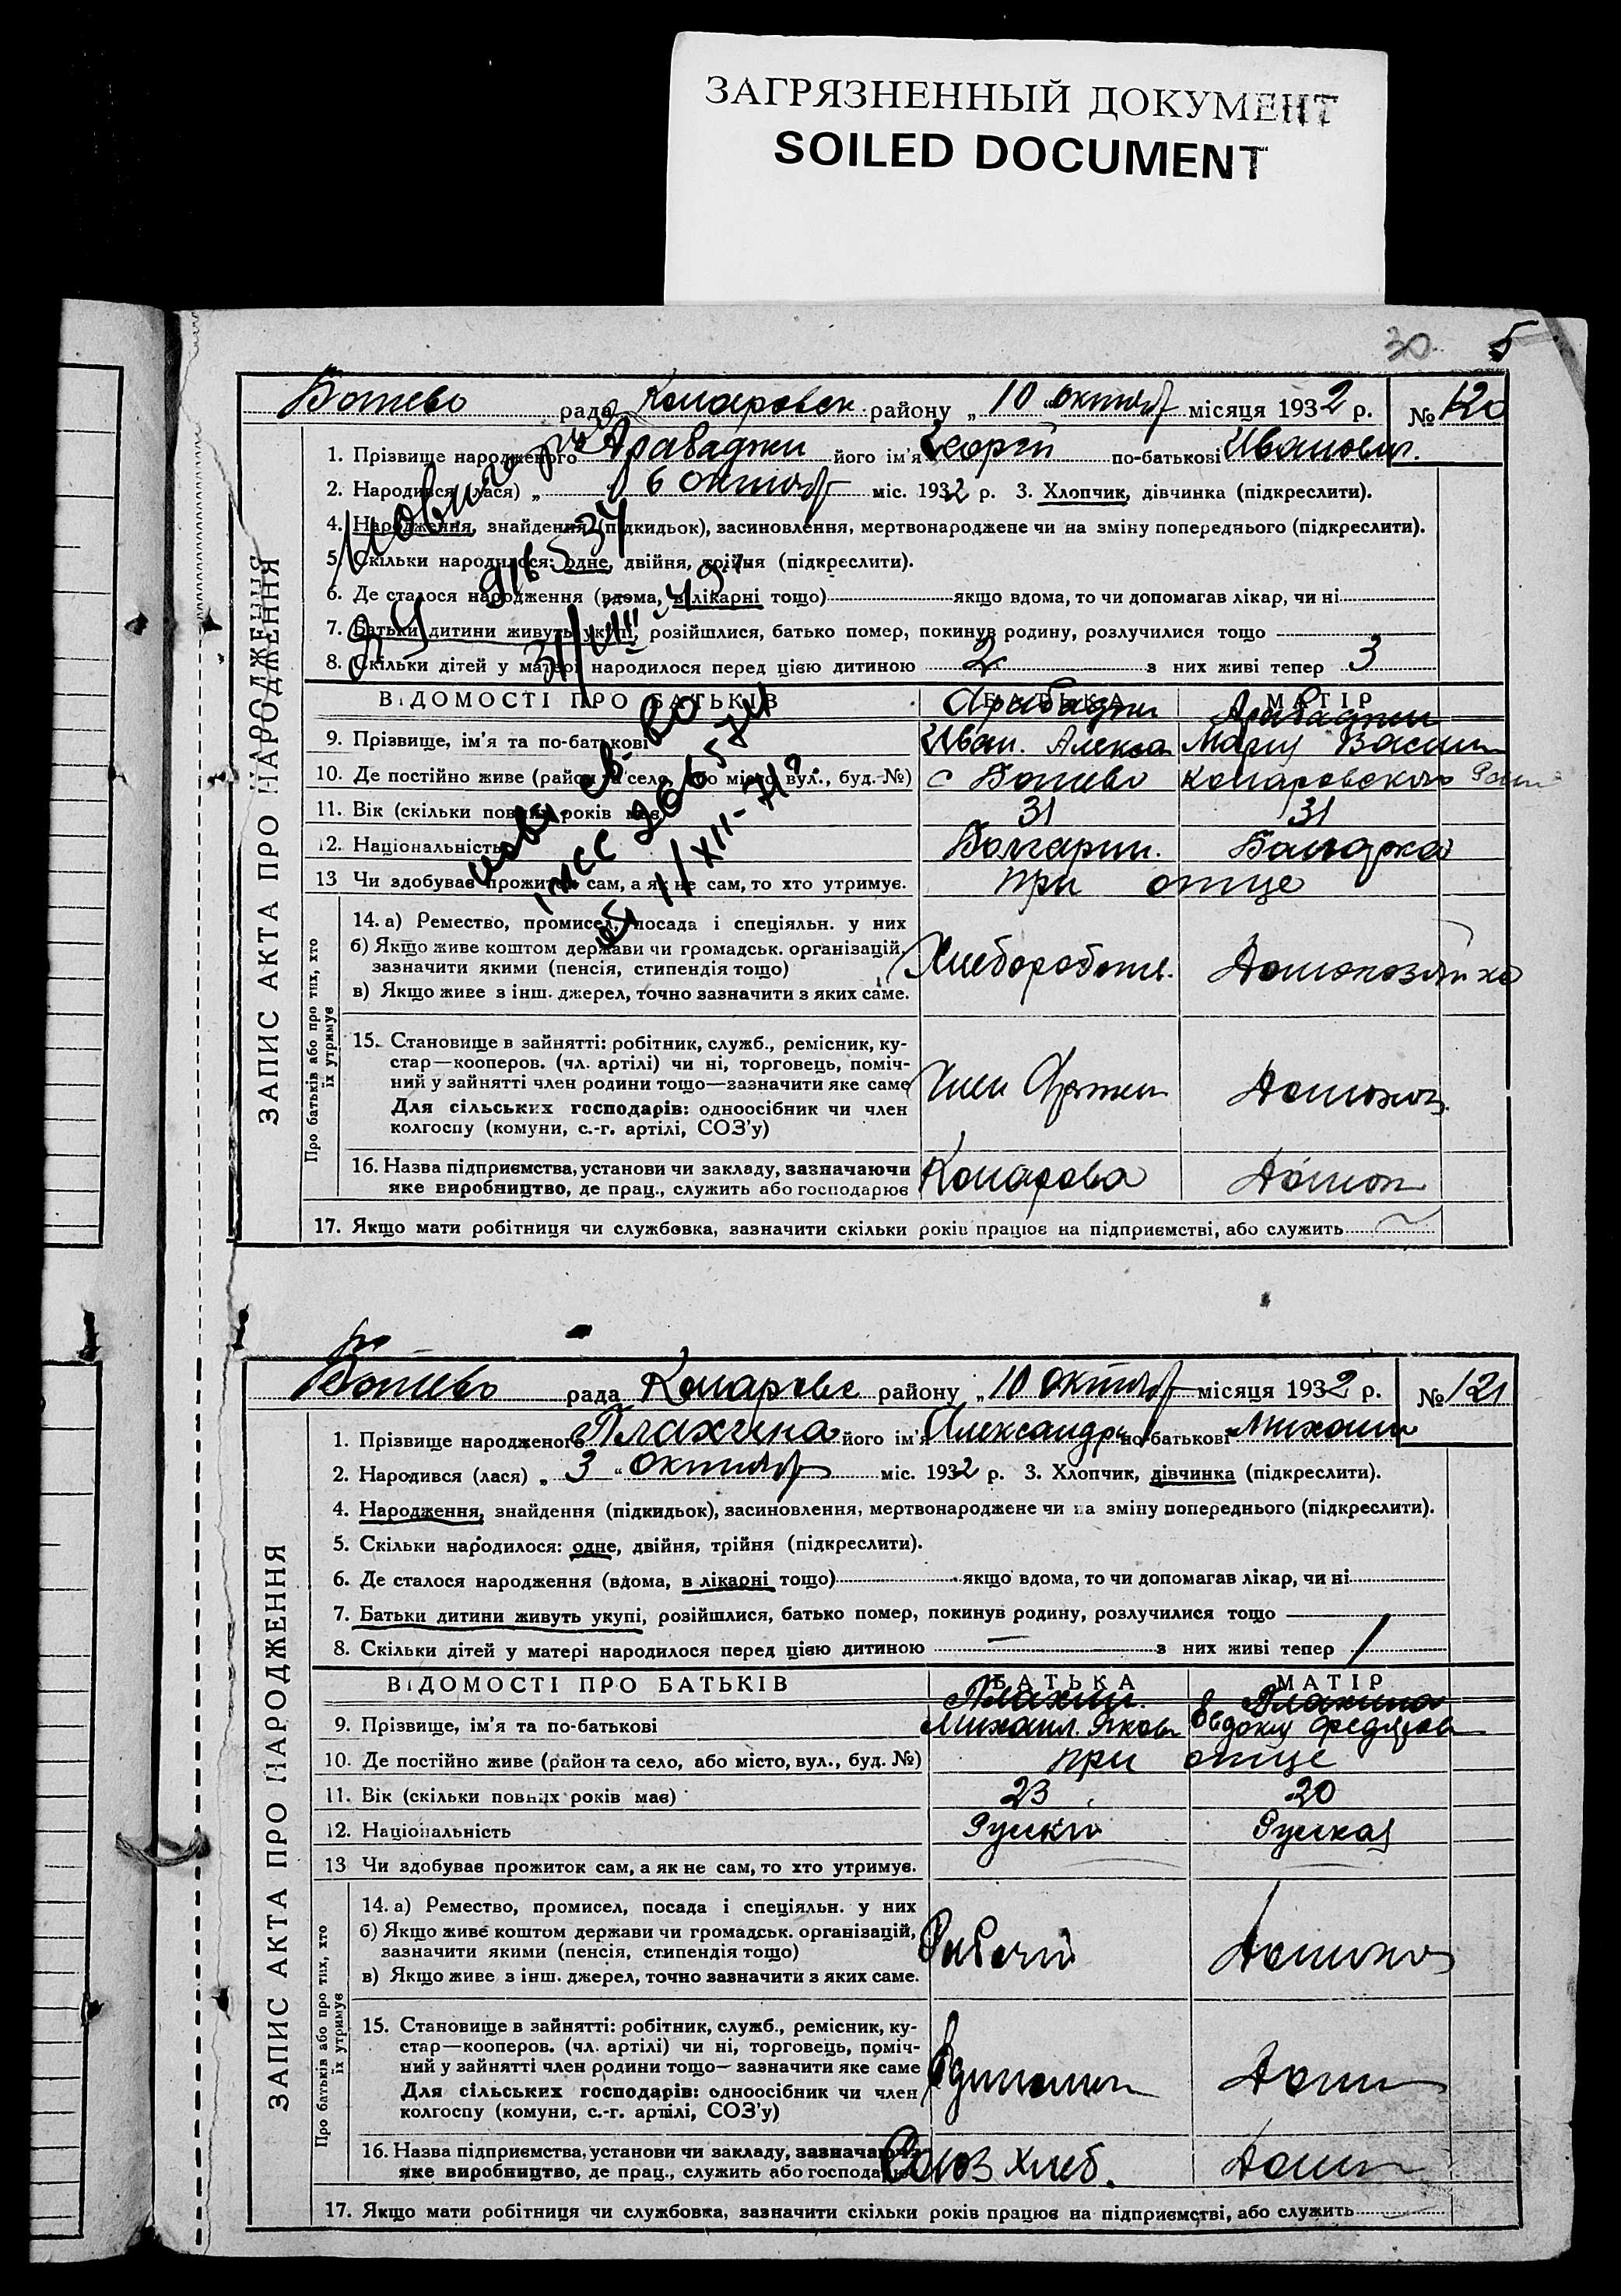 ЗАГРЯЗНЕННЫЙ ДОКУМЕНТ
SOILED DOCUMENT
30 5
Ботево рада Комаровск району „ 10 октября місяця 1932 р. № 120
ЗАПИС АКТА ПРО НАРОДЖЕННЯ
1. Прізвище народженого Арабаджи його ім'я Георгий по-батькові Иванович.
2. Народився (лася) „ 6 октября міс. 1932 р. 3. Хлопчик, дівчинка (підкреслити).
4. Народження, знайдення (підкидьок), засиновлення, мертвонароджене чи на зміну попереднього (підкреслити).
5. Скільки народилося: одне, двійня, трійня (підкреслити).
6. Де сталося народження (вдома, в лікарні тощо) якщо вдома, то чи допомагав лікар, чи ні
7. Батьки дитини живуть укупі, розійшлися, батько помер, покинув родину, розлучилися тощо
8. Скільки дітей у матері народилося перед цією дитиною 2 з них живі тепер 3
ВІДОМОСТІ ПРО БАТЬКІВ БАТЬКА МАТІР
Арабаджи Арабаджи
9. Прізвище, ім'я та по-батькові Иван. Алексан Мария Васил
10. Де постійно живе (район та село, або місто, вул., буд. №) с Ботево Комаровского
11. Вік (скільки повних років має) 31 31
12. Національність Болгарин. Болгарка
13 Чи здобував прожиток сам, а як не сам, то хто утримує. при отце
Про батьків або про тих, хто їх утримує
14. а) Ремество, промисел, посада і спеціяльн. у них
б) Якщо живе коштом держави чи громадськ. організацій,
зазначити якими (пенсія, стипендія тощо) Хлебороботн. Домохозяйка
в) Якщо живе з інш. джерел, точно зазначити з яких саме.
15. Становище в зайнятті: робітник, служб., ремісник, ку-
стар—кооперов. (чл. артілі) чи ні, торговець, поміч-
ний у зайнятті член родини тощо—зазначити яке саме Член Артели Домохоз.
Для сільських господарів: одноосібник чи член
колгоспу (комуни, с.-г. артілі, СОЗ'у)
16. Назва підприємства, установи чи закладу, зазначаючи Комарова Домох
яке виробництво, де прац., служить або господарює
17. Якщо мати робітниця чи службовка, зазначити скільки років працює на підприємстві, або служить
Ботево рада Комаровс району „ 10 октября місяця 1932 р. № 121
ЗАПИС АКТА ПРО НАРОДЖЕННЯ
1. Прізвище народженого Плахина його ім'я Александра по-батькові Михаил
2. Народився (лася) „ 3 “ октября міс. 1932 р. 3. Хлопчик, дівчинка (підкреслити).
4. Народження, знайдення (підкидьок), засиновлення, мертвонароджене чи на зміну попереднього (підкреслити).
5. Скільки народилося: одне, двійня, трійня (підкреслити).
6. Де сталося народження (вдома, в лікарні тощо) якщо вдома, то чи допомагав лікар, чи ні
7. Батьки дитини живуть укупі, розійшлися, батько помер, покинув родину, розлучилися тощо
8. Скільки дітей у матері народилося перед цією дитиною — з них живі тепер 1
ВІДОМОСТІ ПРО БАТЬКІВ БАТЬКА МАТІР
Плахин. Плахина
9. Прізвище, ім'я та по-батькові Михаил. Яков Евдокия Федоров
10. Де постійно живе (район та село, або місто, вул., буд. №) при отце
11. Вік (скільки повних років має) 23 20
12. Національність Руский Руская
13 Чи здобував прожиток сам, а як не сам, то хто утримує.
Про батьків або про тих, хто їх утримує
14. а) Ремество, промисел, посада і спеціяльн. у них
б) Якщо живе коштом держави чи громадськ. організацій,
зазначити якими (пенсія, стипендія тощо) Рабочий Домохоз
в) Якщо живе з інш. джерел, точно зазначити з яких саме.
15. Становище в зайнятті: робітник, служб., ремісник, ку-
стар—кооперов. (чл. артілі) чи ні, торговець, поміч-
ний у зайнятті член родини тощо—зазначити яке саме Дом
Для сільських господарів: одноосібник чи член
колгоспу (комуни, с.-г. артілі, СОЗ'у)
16. Назва підприємства, установи чи закладу, зазначаючи Союз Хлеб. Дом
яке виробництво, де прац., служить або господарює
17. Якщо мати робітниця чи службовка, зазначити скільки років працює на підприємстві, або служить